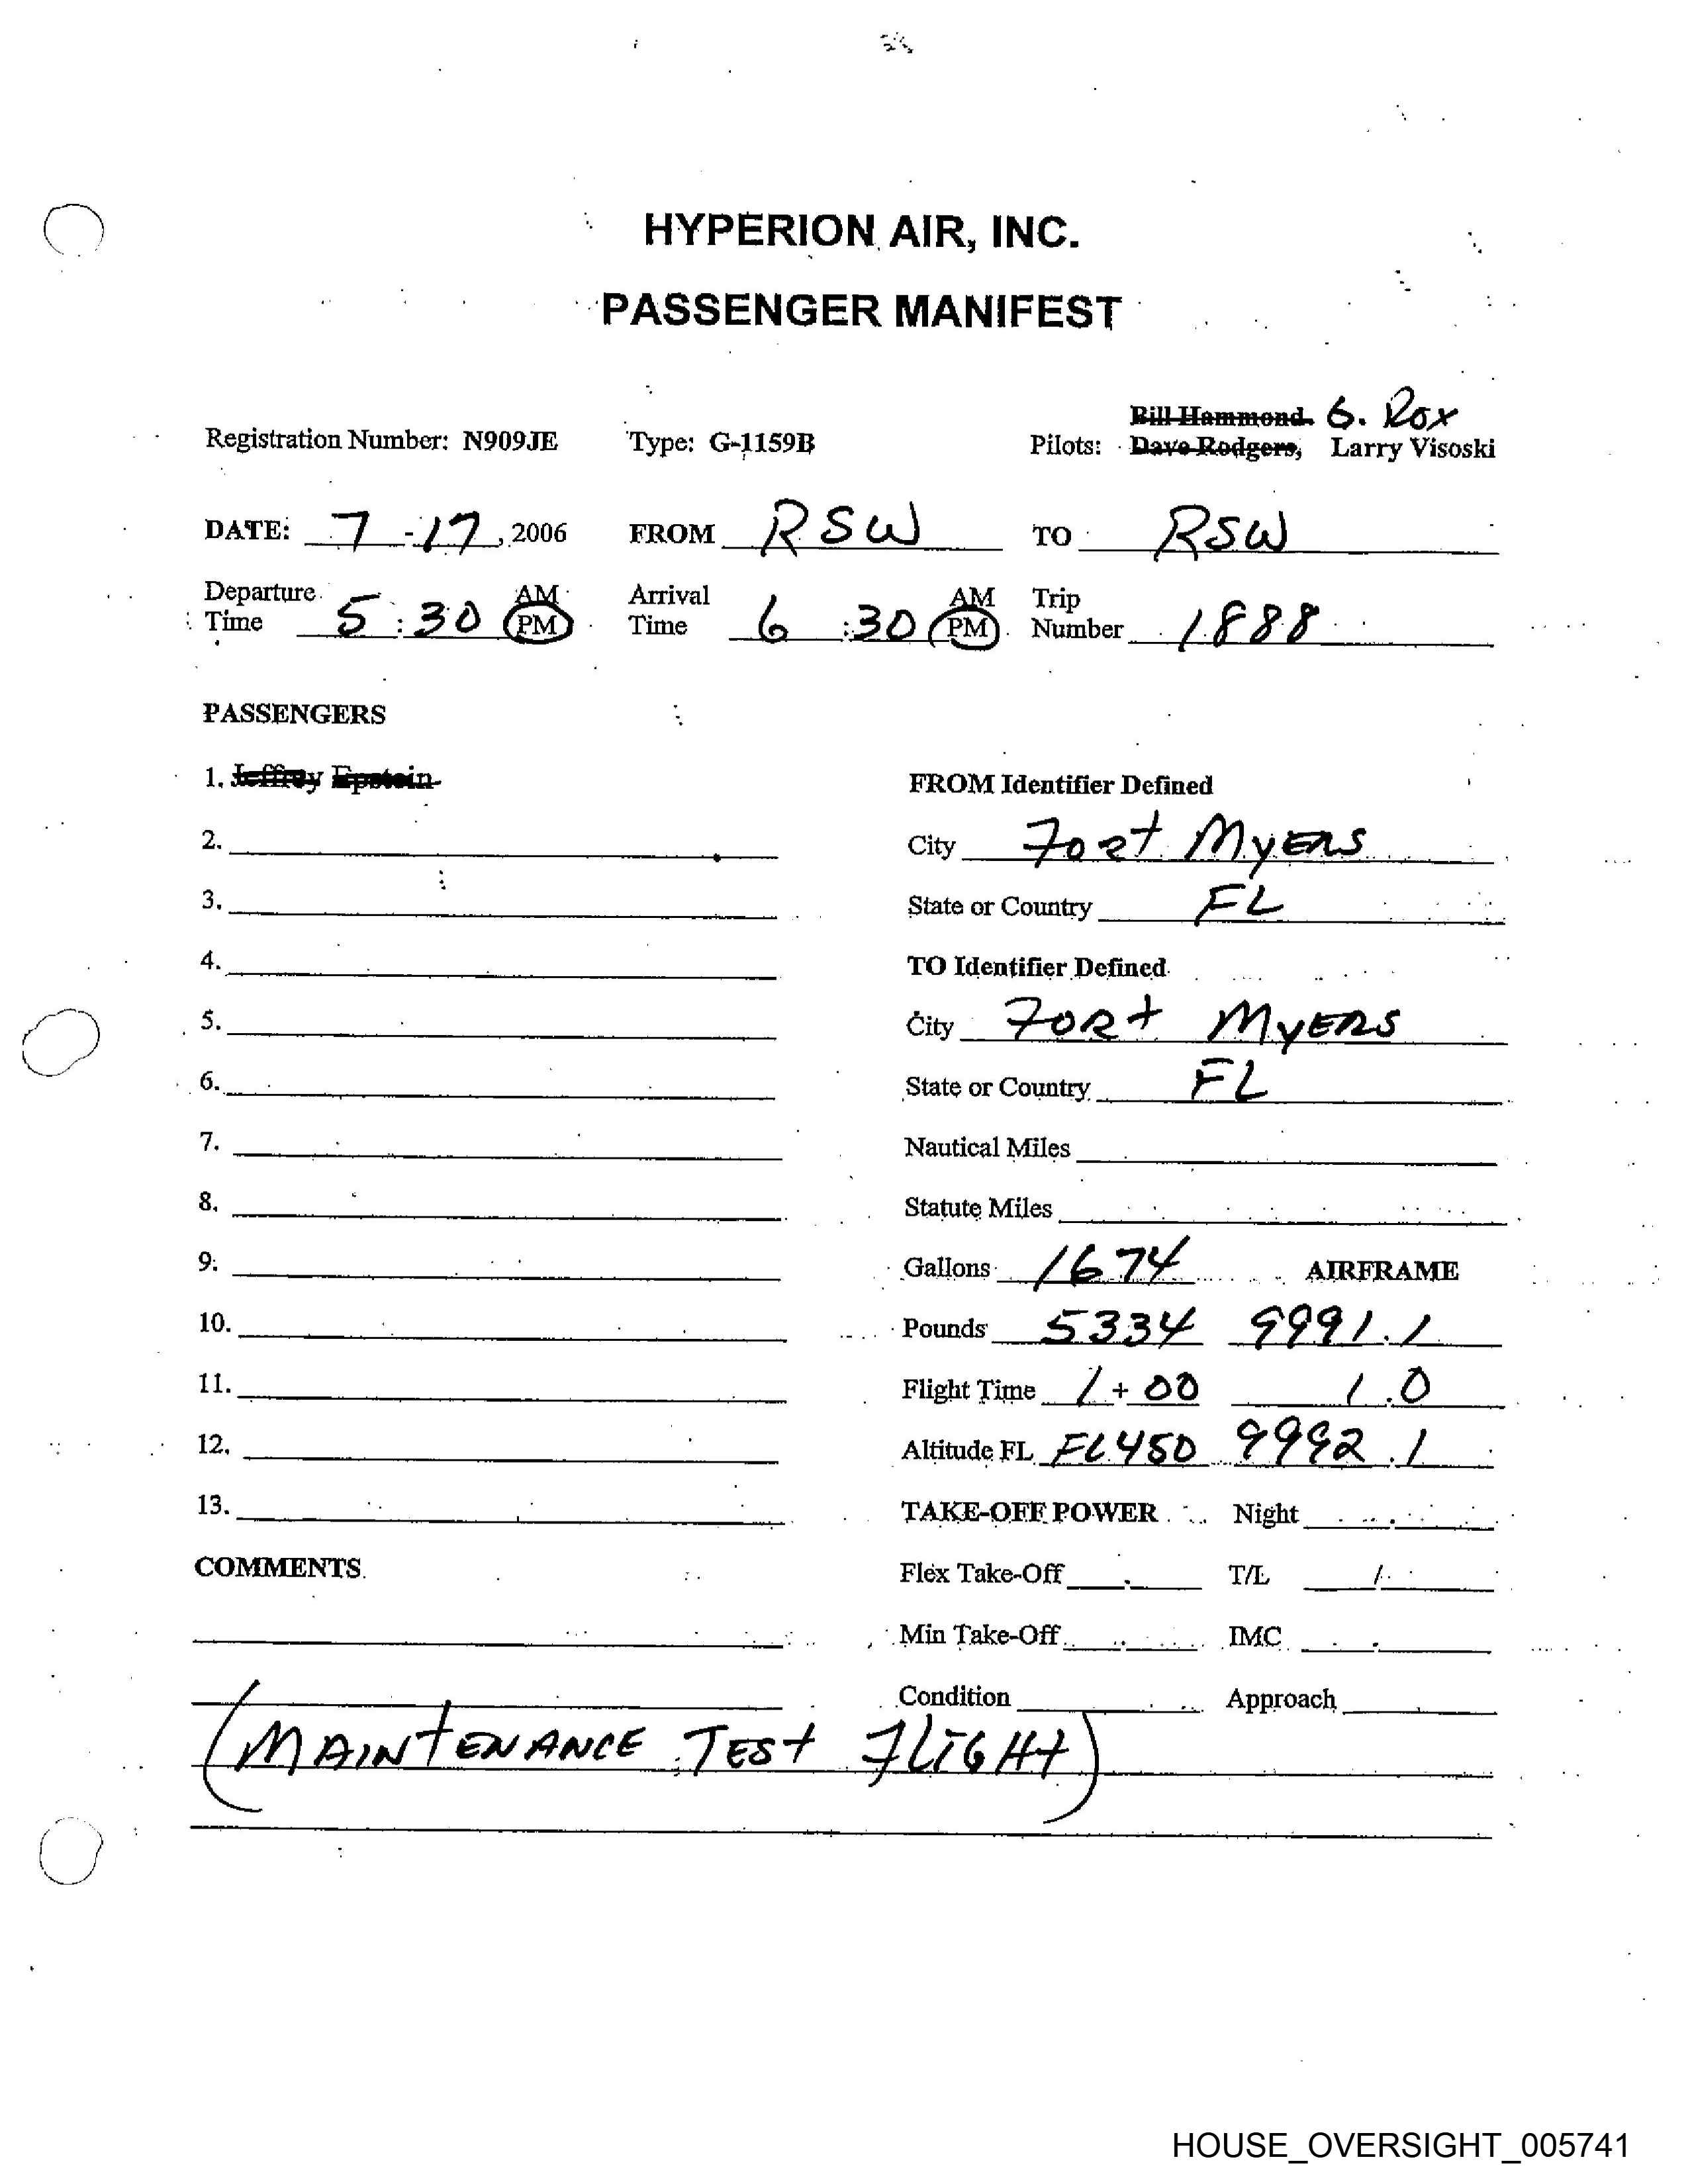 HYPERION AIR, INC.
PASSENGER MANIFEST
Bill Hammond. G. Rox
Registration Number: N909JE Type: G-1159B Pilots: Dave Rodgers, Larry Visoski
DATE: 7-17, 2006 FROM RSW TO RSW
Departure Time 5:30 AM PM Arrival Time 6:30 AM PM Trip Number 1888
PASSENGERS
1. Jeffrey Epstein
FROM Identifier Defined
2.
City Fort Myers
3.
State or Country FL
4.
TO Identifier Defined
5.
City Fort Myers
6.
State or Country FL
7.
Nautical Miles
8.
Statute Miles
9.
Gallons 1674 AIRFRAME
10.
Pounds 5334 9991.1
11.
Flight Time 1+00 1.0
12.
Altitude FL FL450 9992.1
13.
TAKE-OFF POWER Night
COMMENTS
Flex Take-Off T/L /
Min Take-Off IMC
Condition Approach
(MAINTENANCE TEST FLIGHT)
HOUSE_OVERSIGHT_005741